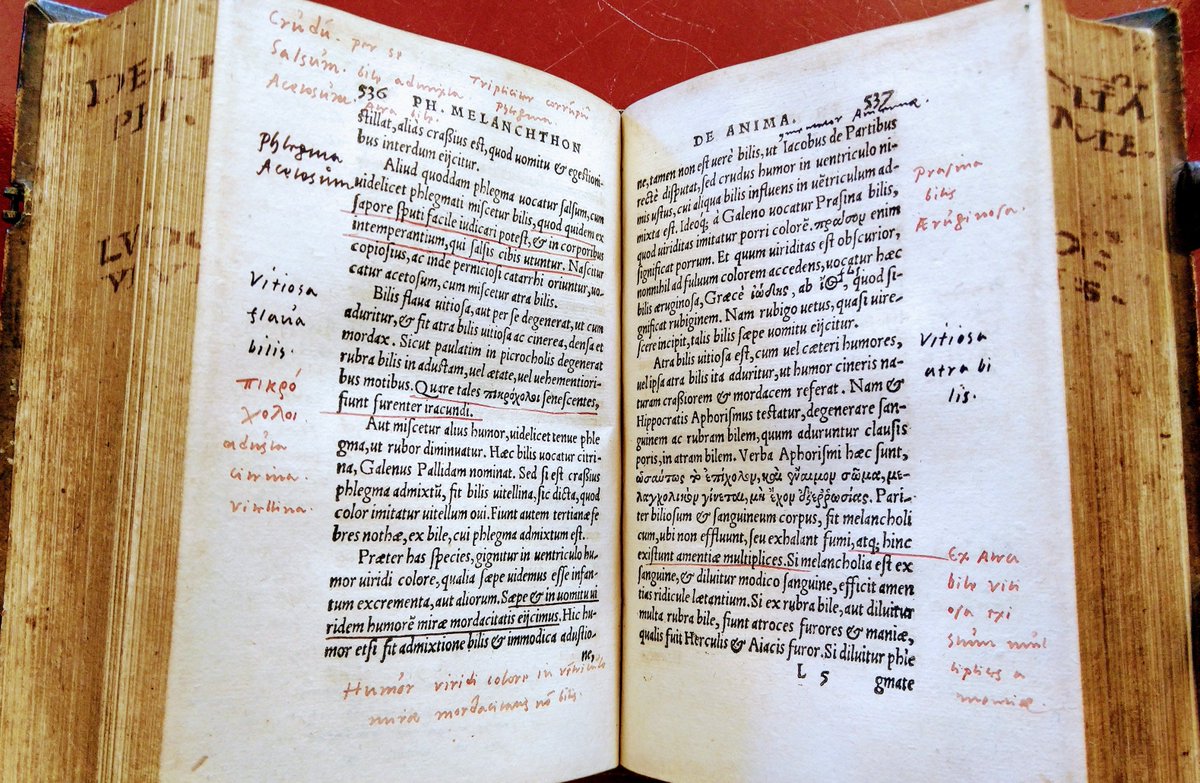 Crudũ. per se
Salsum. bile admixta
Acetosum. Atra bile.
Tripliciter corrũpit
Phlegma.
536 PH. MELANCHTHON
stillat, aliàs crassius est, quod uomitu & egestioni-
bus interdum eijcitur.
Aliud quoddam phlegma uocatur salsum, cum
uidelicet phlegmati miscetur bilis, quod quidem ex
sapore sputi facile iudicari potest, & in corporibus
intemperantium, qui salsis cibis utuntur. Nascitur
copiosius, ac inde perniciosi catarrhi oriuntur, uo-
catur acetosum, cum miscetur atra bilis.
Bilis flaua uitiosa, aut per se degenerat, ut cum
aduritur, & fit atra bilis uitiosa ac cinerea, densa et
mordax. Sicut paulatim in picrocholis degenerat
rubra bilis in adustam, uel ætate, uel uehementiori-
bus motibus. Quare tales πικρόχολοι senescentes,
fiunt furenter iracundi.
Aut miscetur alius humor, uidelicet tenue phle
gma, ut rubor diminuatur. Hæc bilis uocatur citri-
na, Galenus Pallidam nominat. Sed si est crassius
phlegma admixtũ, fit bilis uitellina, sic dicta, quod
color imitatur uitellum oui. Fiunt autem tertianæ fe
bres nothæ, ex bile, cui phlegma admixtum est.
Præter has species, gignitur in uentriculo hu-
mor uiridi colore, qualia sæpe uidemus esse infan-
tum excrementa, aut aliorum. Sæpe & in uomitu ui
ridem humorẽ miræ mordacitatis eijcimus. Hic hu-
mor etsi fit admixtione bilis & immodica adustio-
ne,
Phlegma
Acetosum
Vitiosa
flaua
bilis.
πικρό
χολοι
adusta
citrina.
vitellina.
Humor viridi colore in vẽtriculo
miræ mordacitatis nõ bilis.
537
DE ANIMA.
ne, tamen non est uerè bilis, ut Iacobus de Partibus
rectè disputat, sed crudus humor in uentriculo ni-
mis ustus, cui aliqua bilis influens in uẽtriculum ad-
mixta est. Ideoq́; à Galeno uocatur Prasina bilis,
quod uiriditas imitatur porri colorẽ. πράσον enim
significat porrum. Et quum uiriditas est obscurior,
nonnihil ad fuluum colorem accedens, uocatur hæc
bilis æruginosa, Græcè ἰώδης, ab ἰὸς, quod si-
gnificat rubiginem. Nam rubigo uetus, quasi uire-
scere incipit, talis bilis sæpe uomitu eijcitur.
Atra bilis uitiosa est, cum uel cæteri humores,
uel ipsa atra bilis ita aduritur, ut humor cineris na-
turam crassiorem & mordacem referat. Nam &
Hippocratis Aphorismus testatur, degenerare san-
guinem ac rubram bilem, quum aduruntur clausis
poris, in atram bilem. Verba Aphorismi hæc sunt,
ὡσαύτως ὸ ἐπίχολον, καὶ ὕναιμον σῶμα, με-
λαγχολικὸν γίνεται, μὴ ἔχον ἐξερρωσίας. Pari-
ter biliosum & sanguineum corpus, fit melancholi
cum, ubi non effluunt, seu exhalant fumi, atq; hinc
existunt amentiæ multiplices. Si melancholia est ex
sanguine, & diluitur modico sanguine, efficit amen
tias ridicule lætantium. Si ex rubra bile, aut diluitur
multa rubra bile, fiunt atroces furores & maniæ,
qualis fuit Herculis & Aiacis furor. Si diluitur phle
L 5 gmate
Prasina
bilis
Æruginosa.
Vitiosa
atra bi
lis.
Ex Atra
bile viti
osa exi
stunt mul
tiplices a
mentiæ.